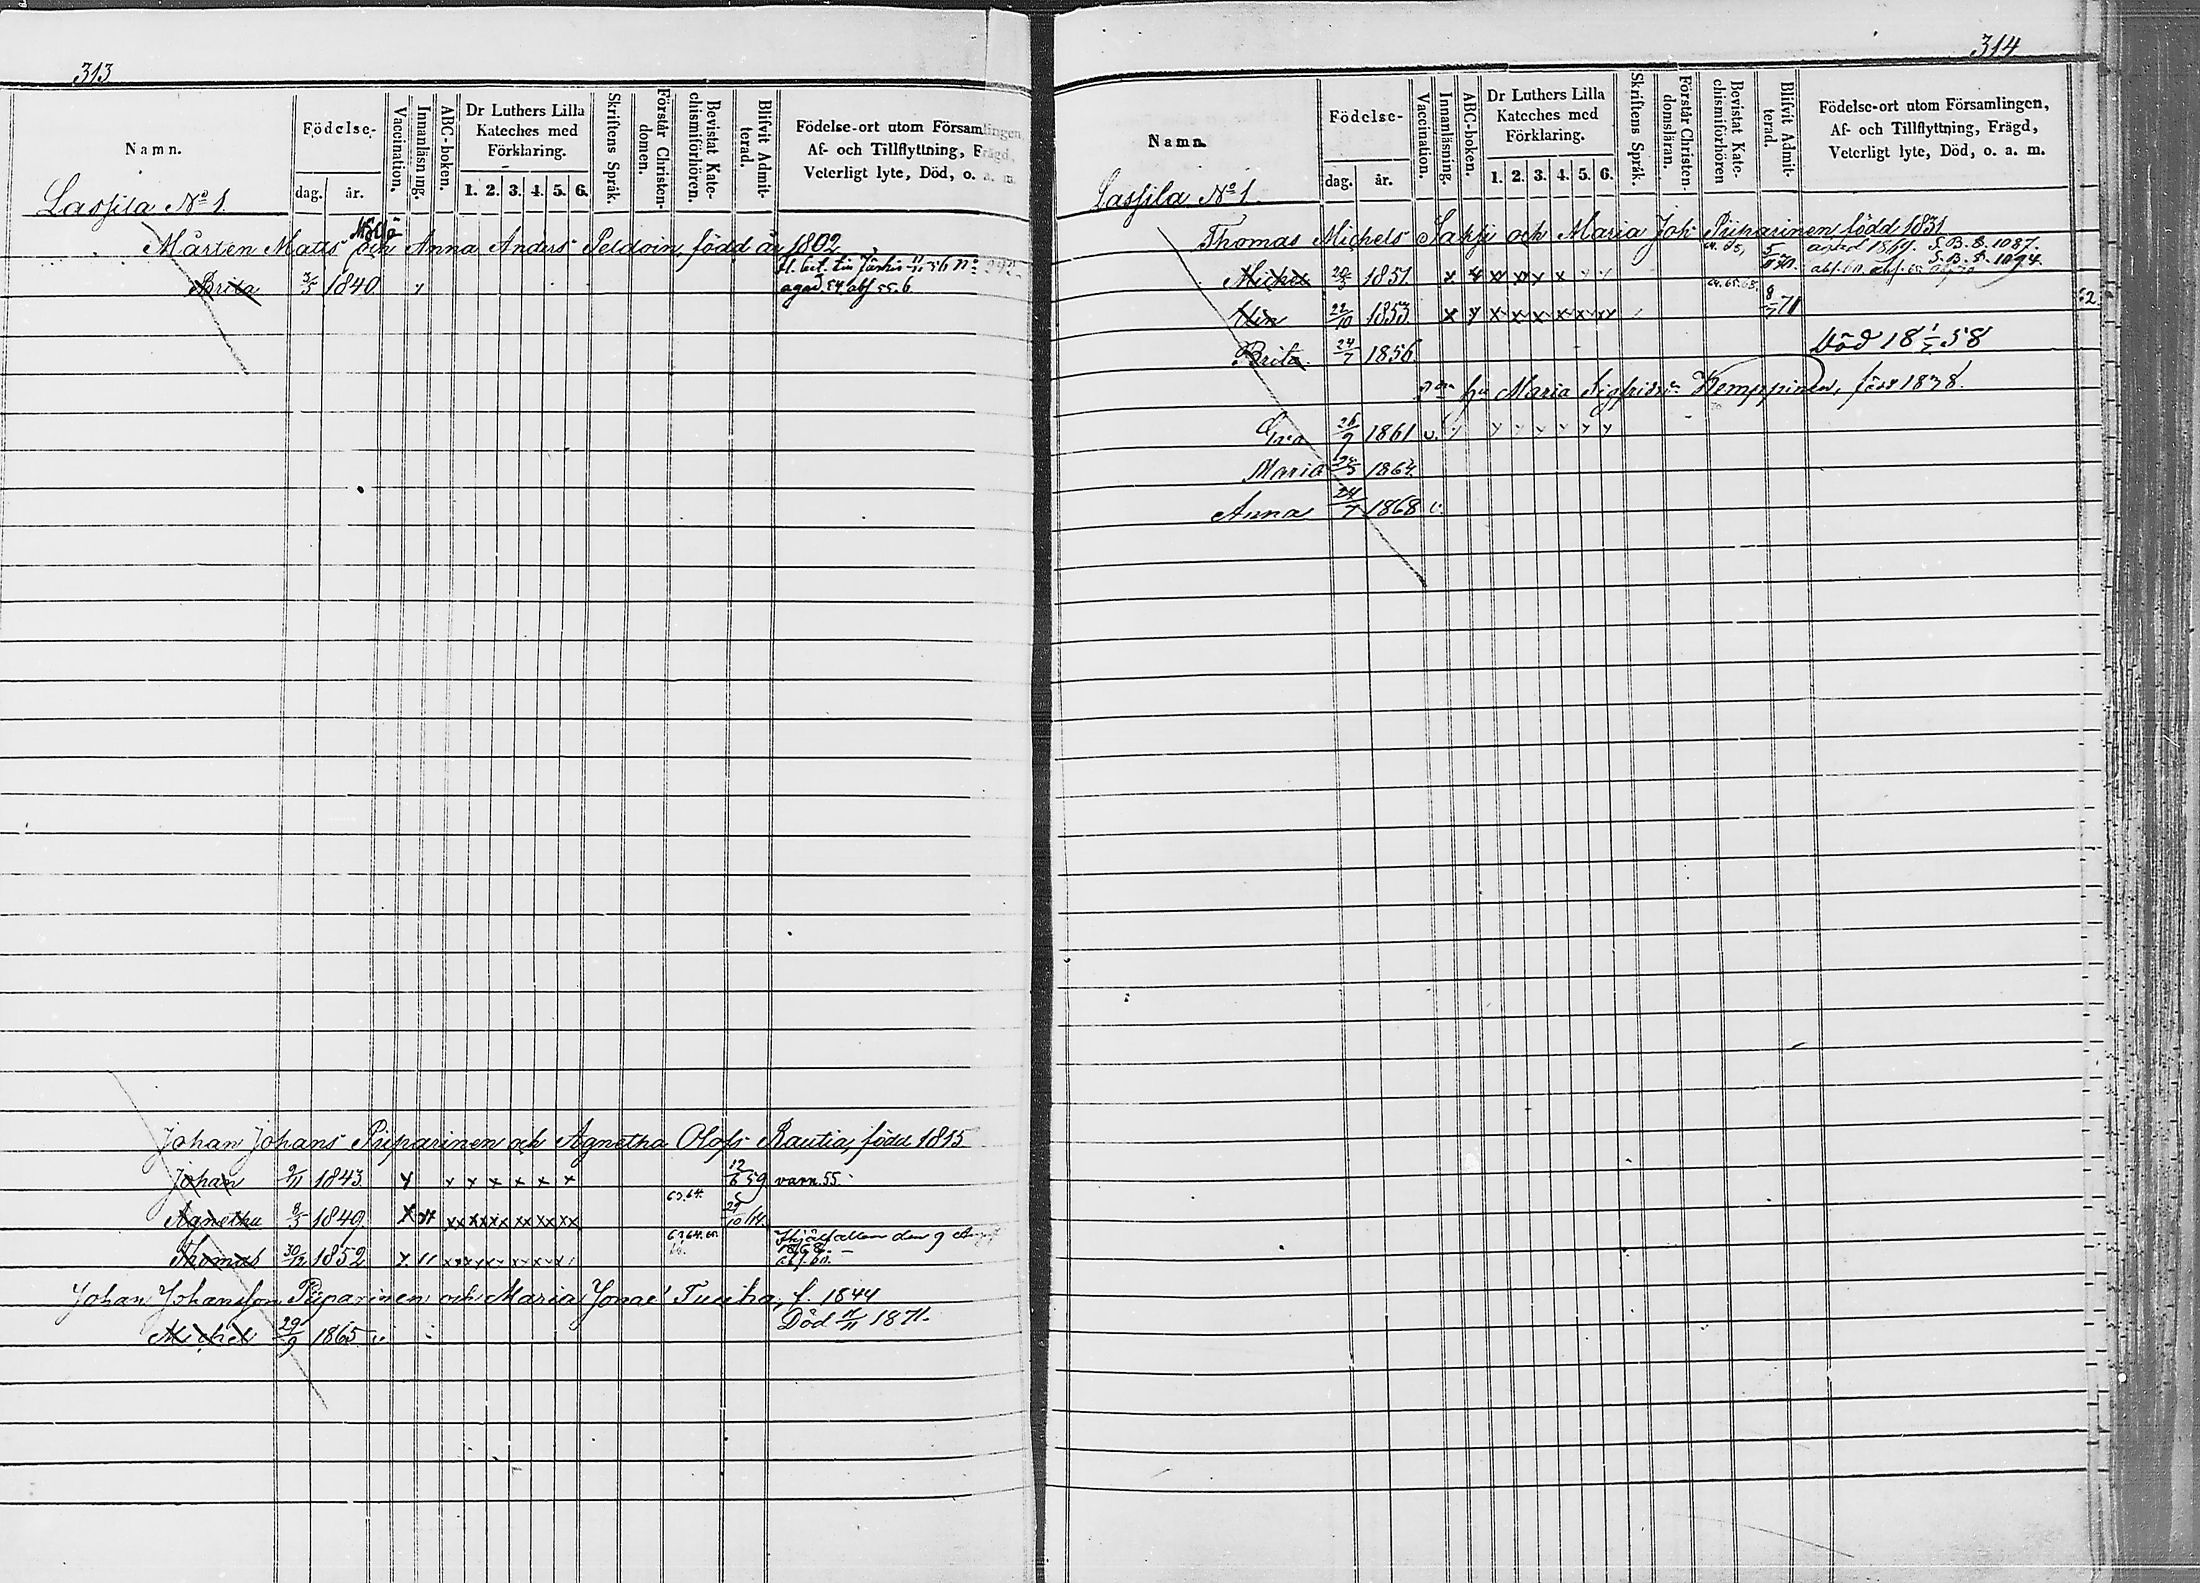 313
Namn.
Födelse-
dag. år.
Vaccination.
Innanläsning.
ABC-boken.
Dr Luthers Lilla
Kateches med
Förklaring.
1. 2. 3. 4. 5. 6.
Skriftens Språk.
Förstår Christen-
domen.
Bevistat Kate-
chismiförhören.
Blifvit Admit-
terad.
Födelse-ort utom Församlingen
Af- och Tillflyttning, Frägd,
Veterligt lyte, Död, o. a. m.
Lassila No 1.
Mårten Matts och Anna Anders Peldoin, född år 1802
Brita 3/5 1840
Johan Johans Piiparinen och Agnetha Olofs Rautia, född 1815
Johan 9/11 1843 x x x x x x x 12/6 59 varn. 55.
63.64.
Agnetha 8/5 1849 29/10
Thomas 30/12 1852 den 9
1868.
Johan Johansson Piiparinen och Maria Jonae f. 1844
Michel 29/9 1865 Död 1871.
314
Namn.
Födelse-
dag. år.
Vaccination.
Innanläsning.
ABC-boken.
Dr Luthers Lilla
Kateches med
Förklaring.
1. 2. 3. 4. 5. 6.
Skriftens Språk.
Förstår Christen-
domsläran.
Bevistat Kate-
chismiförhören
Blifvit Admit-
terad.
Födelse-ort utom Församlingen,
Af- och Tillflyttning, Frägd,
Veterligt lyte, Död, o. a. m.
Lassila No 1.
Thomas Michels och Maria Joh. Piiparinen född 1831
1869. S. B. S. 1087.
S. B. S. 1094.
Michel 1851.
64. 65. 68.
22/10 1853. x x x x x x x 8/7 71
Brita 24/7 1856 Död 18 58
Maria Sigfrids Kemppinen, född 1838.
Eva 26/9 1861
Maria 1864.
Anna 24/7 1868